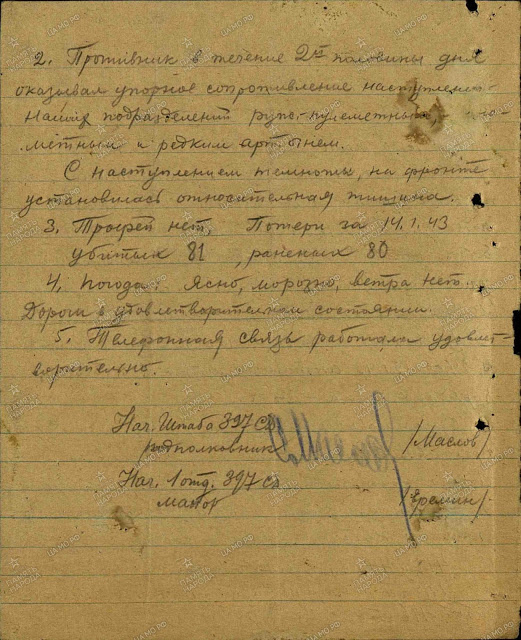 2. Противник в течение 2ой половины дня
оказывал упорное сопротивление наступлению
наших подразделений руж-пулеметным
метным и редким артогнем.
С наступлением темноты, на фронте
установилась относительная тишина.
3. Трофей нет. Потери за 14.1.43
убитых 81, раненых 80
4. Погода: Ясно, морозно, ветра нет.
Дороги в удовлетворительном состоянии.
5. Телефонная связь работала удовлет-
ворительно.
Нач. Штаба 397 сд
подполковник /Маслов/
Нач. 1 отд. 397 сд
майор /Еремин/